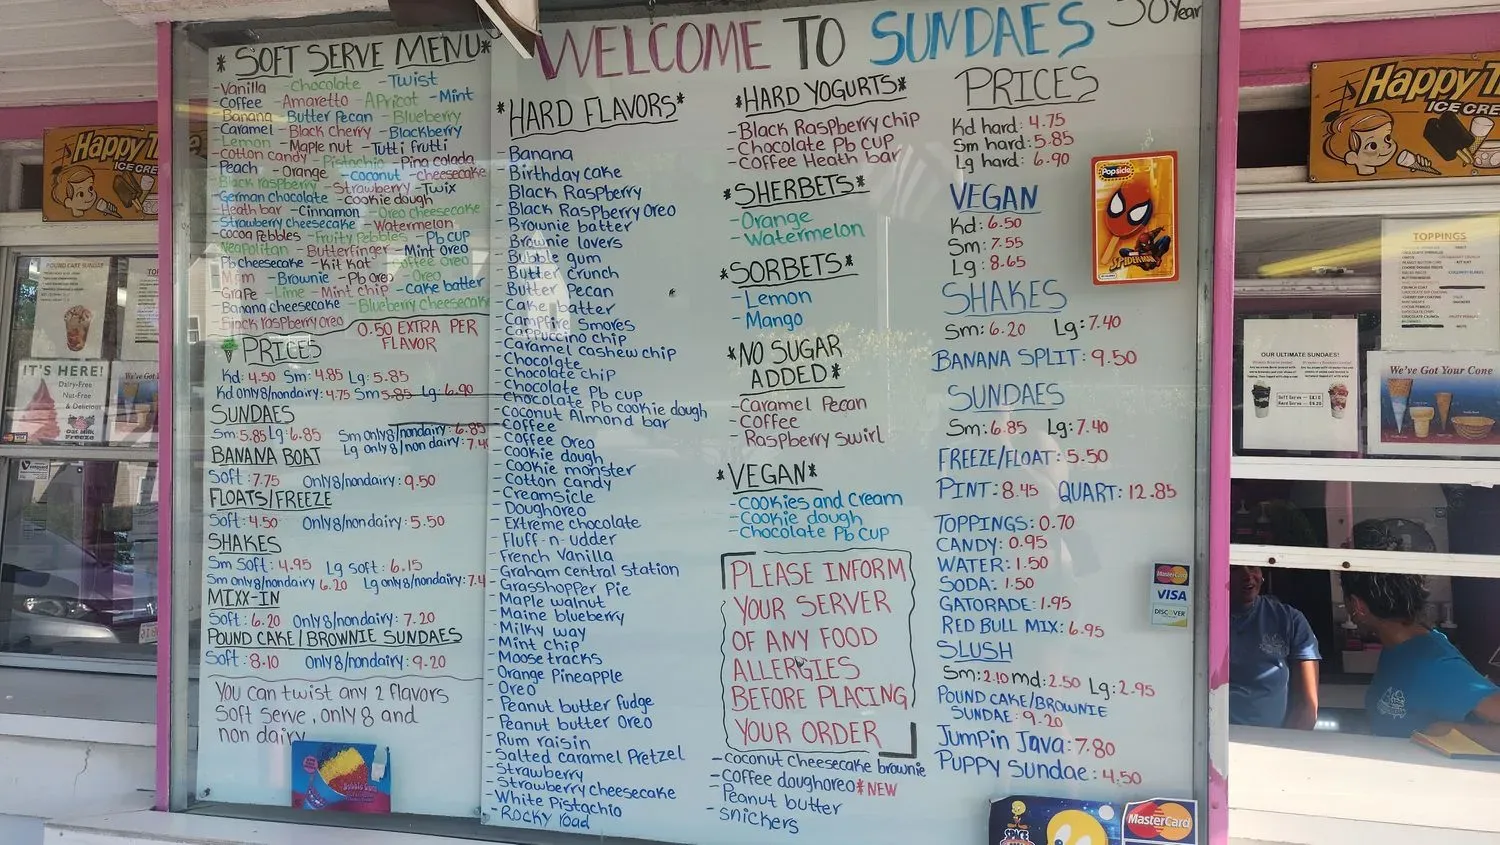 WELCOME TO SUNDAES 50 Year
*SOFT SERVE MENU*
-Vanilla -Chocolate -Twist
Coffee -Amaretto -Apricot -Mint
Banana -Butter Pecan -Blueberry
Caramel -Black Cherry -Blackberry
-Lemon -Maple nut -Tutti frutti
-Cotton candy -Pistachio -Pina colada
Peach -Orange -coconut -Cheesecake
-Black raspberry -Strawberry -Twix
German chocolate -Cookie dough
Heath bar -Cinnamon -Oreo cheesecake
Strawberry cheesecake -Watermelon
-Cocoa Pebbles -Fruity Pebbles -Pb cup
Neapolitan -Butterfinger -Mint Oreo
Pb cheesecake -Kit Kat -Coffee Oreo
M&m -Brownie -Pb oreo -Oreo
Grape -Lime -Mint chip -Cake batter
Banana cheesecake -Blueberry cheesecake
Black raspberry Oreo
0.50 EXTRA PER
FLAVOR
PRICES
Kd: 4.50 Sm: 4.85 Lg: 5.85
Kd only8/nondairy: 4.75 Sm 5.85 Lg: 6.90
SUNDAES
Sm: 5.85 Lg: 6.85 Sm only8/nondairy: 6.85
Lg only8/non dairy: 7.40
BANANA BOAT
Soft: 7.75 Only8/nondairy: 9.50
FLOATS/FREEZE
Soft: 4.50 Only8/nondairy: 5.50
SHAKES
Sm Soft: 4.95 Lg soft: 6.15
Sm only8/nondairy 6.20 Lg only8/nondairy: 7.4
MIXX-IN
Soft: 6.20 Only8/nondairy: 7.20
POUND CAKE/BROWNIE SUNDAES
Soft: 8.10 Only8/nondairy: 9.20
You can twist any 2 flavors
Soft serve, only 8 and
non dairy
*HARD FLAVORS*
-Banana
-Birthday cake
-Black Raspberry
-Black Raspberry Oreo
-Brownie batter
-Brownie lovers
-Bubble gum
-Butter crunch
-Butter Pecan
-Cake batter
-Campfire Smores
-Cappuccino chip
-Caramel cashew chip
-Chocolate
-Chocolate chip
-Chocolate Pb cup
-Chocolate Pb cookie dough
-Coconut Almond bar
-Coffee
-Coffee Oreo
-Cookie dough
-Cookie monster
-Cotton candy
-Creamsicle
-Doughoreo
-Extreme chocolate
-Fluff-n-udder
-French Vanilla
-Graham central station
-Grasshopper Pie
-Maple walnut
-Maine blueberry
-Milky way
-Mint chip
-Moosetracks
-Orange Pineapple
-Oreo
-Peanut butter fudge
-Peanut butter Oreo
-Rum raisin
-Salted caramel Pretzel
-Strawberry
-Strawberry cheesecake
-White Pistachio
-Rocky road
*HARD YOGURTS*
-Black Raspberry chip
-Chocolate Pb cup
-Coffee Heath bar
*SHERBETS*
-Orange
-Watermelon
*SORBETS*
-Lemon
-Mango
*NO SUGAR
ADDED*
-Caramel Pecan
-Coffee
-Raspberry Swirl
*VEGAN*
-Cookies and Cream
-Cookie dough
-Chocolate Pb cup
PLEASE INFORM
YOUR SERVER
OF ANY FOOD
ALLERGIES
BEFORE PLACING
YOUR ORDER
-Coconut cheesecake brownie
-Coffee doughoreo*NEW
-Peanut butter
-Snickers
PRICES
Kd hard: 4.75
Sm hard: 5.85
Lg hard: 6.90
VEGAN
Kd: 6.50
Sm: 7.55
Lg: 8.65
SHAKES
Sm: 6.20 Lg: 7.40
BANANA SPLIT: 9.50
SUNDAES
Sm: 6.85 Lg: 7.40
FREEZE/FLOAT: 5.50
PINT: 8.45 QUART: 12.85
TOPPINGS: 0.70
CANDY: 0.95
WATER: 1.50
SODA: 1.50
GATORADE: 1.95
RED BULL MIX: 6.95
SLUSH
Sm: 2.10 md: 2.50 Lg: 2.95
POUND CAKE/BROWNIE
SUNDAE: 9.20
Jumpin Java: 7.80
Puppy Sundae: 4.50
Popsicle
SPIDER-MAN
MasterCard
VISA
DISCOVER
MasterCard
SPACE
Happy T
ICE CRE
POUND CAKE SUNDAE
IT'S HERE!
Dairy-Free
Nut-Free
& Delicious
Oat Milk
Freeze
We've Got
Happy T
ICE CRE
TOPPINGS
OUR ULTIMATE SUNDAES!
Soft Serve - $8.10
Hard Serve - $9.20
We've Got Your Cone